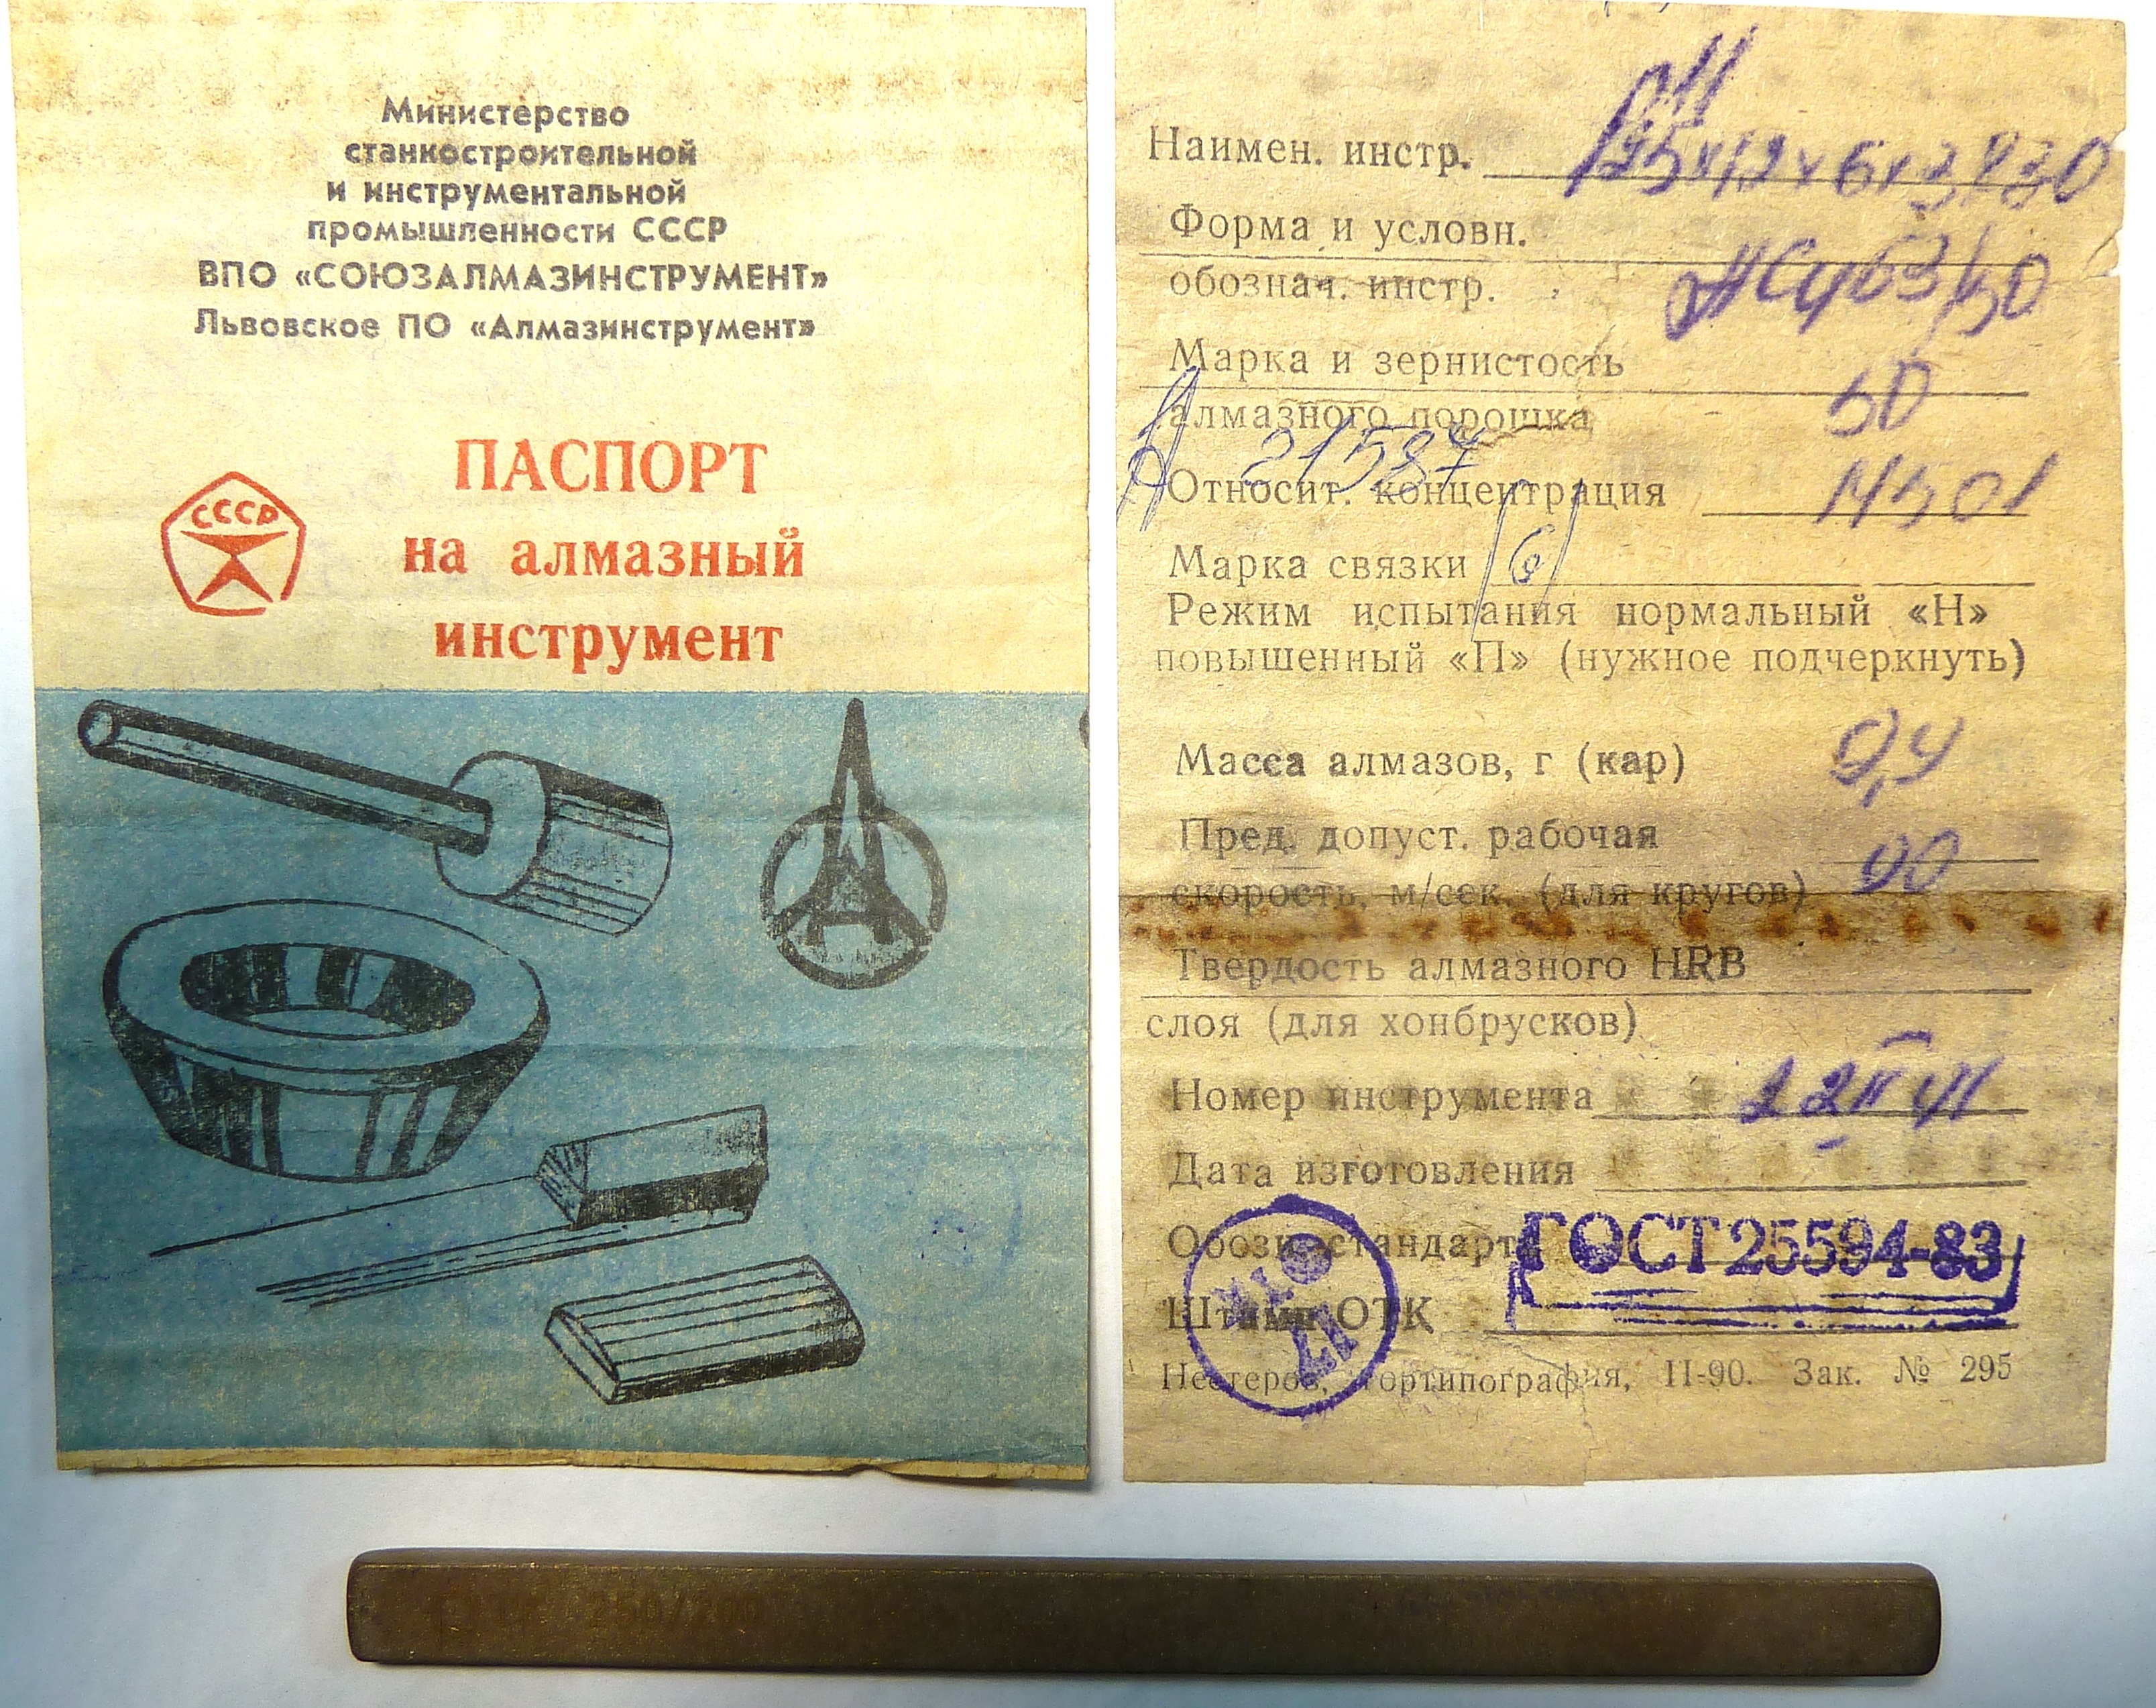 Министерство
станкостроительной
и инструментальной
промышленности СССР
ВПО «СОЮЗАЛМАЗИНСТРУМЕНТ»
Львовское ПО «Алмазинструмент»
ПАСПОРТ
на алмазный
инструмент
СССР
Наимен. инстр.
Форма и условн.
обознач. инстр.
63/50
Марка и зернистость
алмазного порошка
50
21587
Относит. концентрация
Марка связки
Режим испытания нормальный «Н»
повышенный «П» (нужное подчеркнуть)
Масса алмазов, г (кар)
Пред. допуст. рабочая
скорость, м/сек. (для кругов)
Твердость алмазного HRB
слоя (для хонбрусков)
Номер инструмента
Дата изготовления
Обозн. стандарта ГОСТ 25594-83
Штамп ОТК
Нестеров. гортипография, II-90. Зак. № 295
250/200